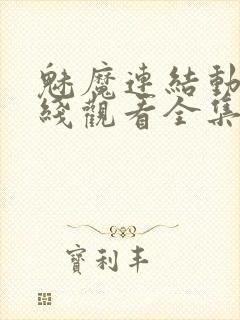 魅魔連結動
綫觀看全集
寶利丰